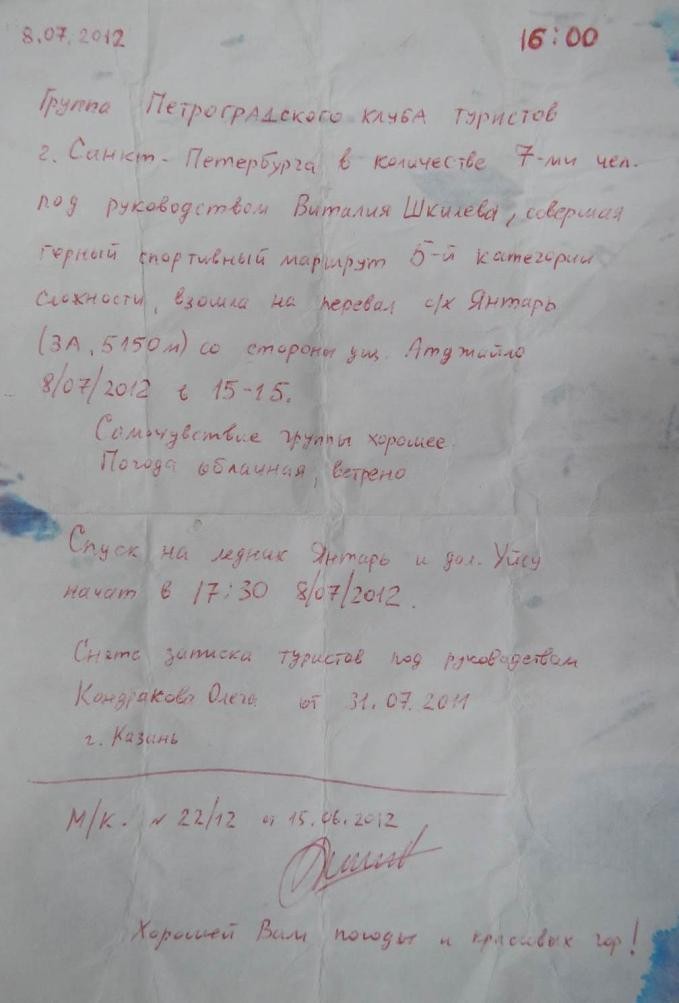 8.07.2012 16:00
Группа Петроградского клуба туристов
г. Санкт-Петербурга в количестве 7-ми чел.
под руководством Виталия Шкилева, совершая
горный спортивный маршрут 5-й категории
сложности, взошла на перевал с/х Янтарь
(3А, 5150м) со стороны ущ. Атджайло
8/07/2012 в 15-15.
Самочувствие группы хорошее.
Погода облачная, ветрено
Спуск на ледник Янтарь и дол. Уйсу
начат в 17:30 8/07/2012.
Снята записка туристов под руководствам
Кондракова Олега от 31.07.2011
г. Казань
М/к. N 22/12 от 15.06.2012
Хорошей Вам погоды и красивых гор!